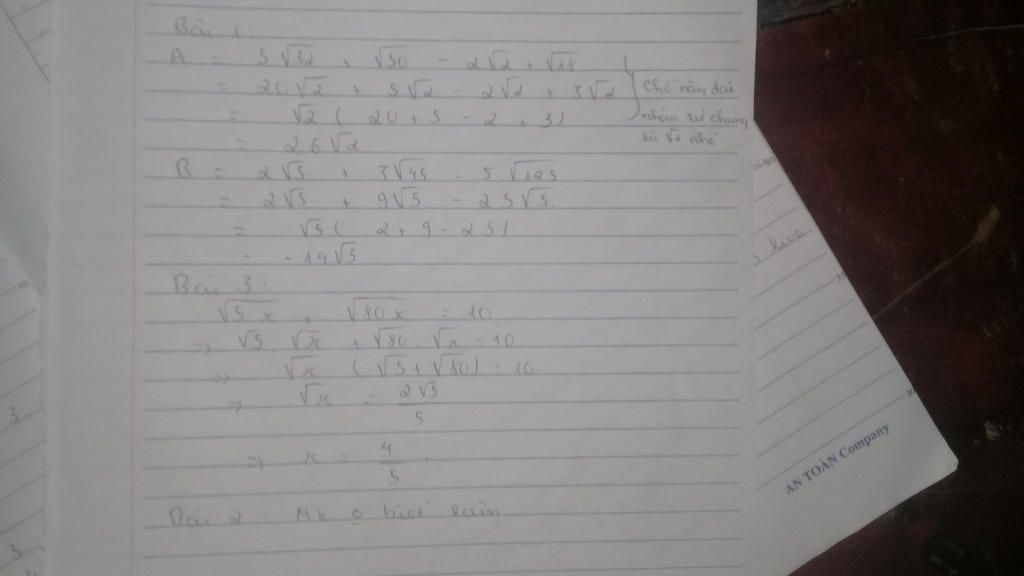 Bài 1:
A = 5√32 + √50 - 2√2 + √18
= 20√2 + 5√2 - 2√2 + 3√2
= √2 ( 20 + 5 - 2 + 3)
= 26√2
Chỗ này đặt
nhân tử chung
là √2 nhé
B = 2√5 + 3√45 - 5√125
= 2√5 + 9√5 - 25√5
= √5 ( 2 + 9 - 25)
= -14√5
Bài 3:
√5x + √80x = 10
=> √5 . √x + √80 . √x = 10
=> √x (√5 + √80) = 10
=> √x = 2√5/5
=> x = 4/5.
Bài 2: Mk o biết làm
AN TOÀN Company